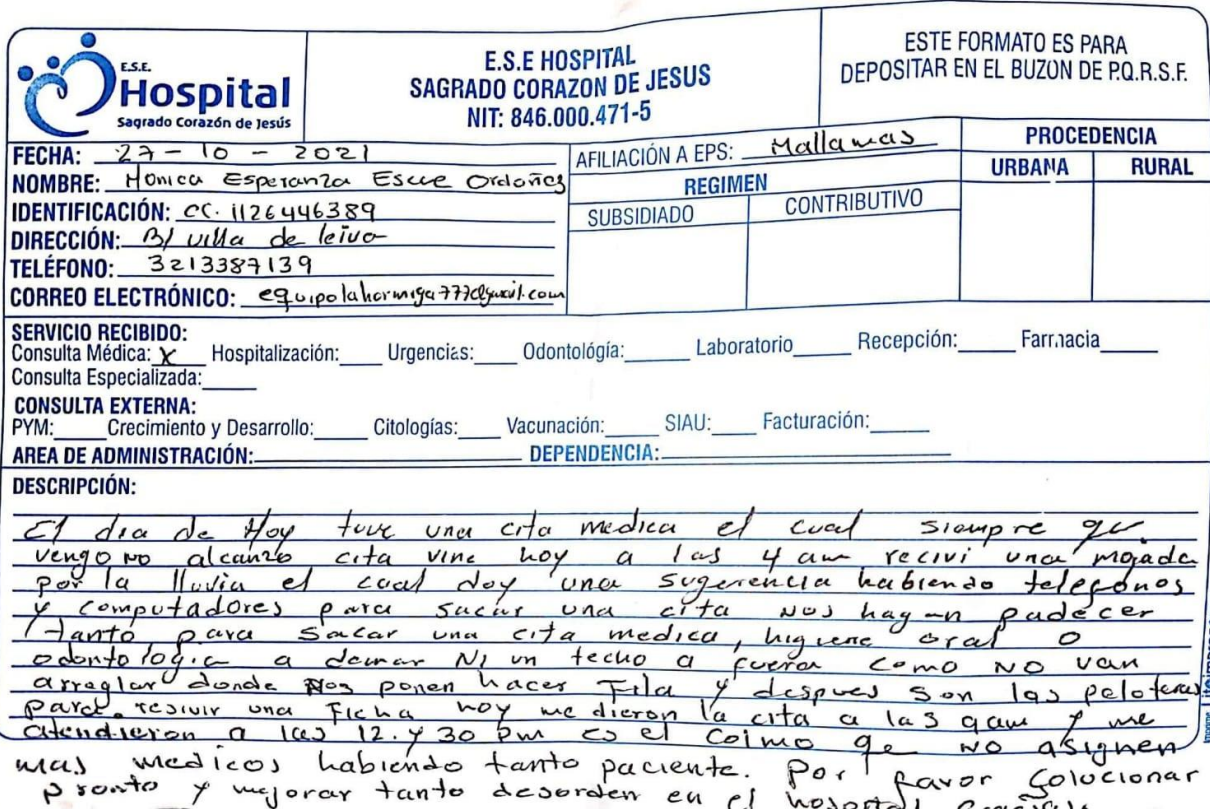 E.S.E.
Hospital
Sagrado Corazón de Jesús
E.S.E HOSPITAL
SAGRADO CORAZON DE JESUS
NIT: 846.000.471-5
ESTE FORMATO ES PARA
DEPOSITAR EN EL BUZON DE P.Q.R.S.F.
FECHA: 27 - 10 - 2021
NOMBRE: Monica Esperanza Escue Ordoñez
IDENTIFICACIÓN: CC. 1126446389
DIRECCIÓN: B/ villa de leiva
TELÉFONO: 3213387139
CORREO ELECTRÓNICO: equipolahormiga777@gmail.com
AFILIACIÓN A EPS: Mallamas
REGIMEN
SUBSIDIADO CONTRIBUTIVO
PROCEDENCIA
URBANA RURAL
SERVICIO RECIBIDO:
Consulta Médica: X Hospitalización: Urgencias: Odontología: Laboratorio Recepción: Farmacia
Consulta Especializada:
CONSULTA EXTERNA:
PYM: Crecimiento y Desarrollo: Citologías: Vacunación: SIAU: Facturación:
AREA DE ADMINISTRACIÓN: DEPENDENCIA:
DESCRIPCIÓN:
El dia de Hoy tuve una cita medica el cual siempre qe
vengo no alcanzo cita vine hoy a las 4 am recivi una mojada
por la lluvia el cual doy una sugerencia habiendo telefonos
y computadores para sacar una cita nos hagan padecer
tanto para sacar una cita medica, higiene oral o
odontologia a demar Ni un techo a fuera como no van
arreglar donde Nos ponen hacer Fila y despues son las peloteras
para resivir una Ficha hoy me dieron la cita a las 9am y me
atendieron a las 12. y 30 pm es el colmo qe no asignen
mas medicos habiendo tanto paciente. Por favor solucionar
pronto y mejorar tanto desorden en el hospital